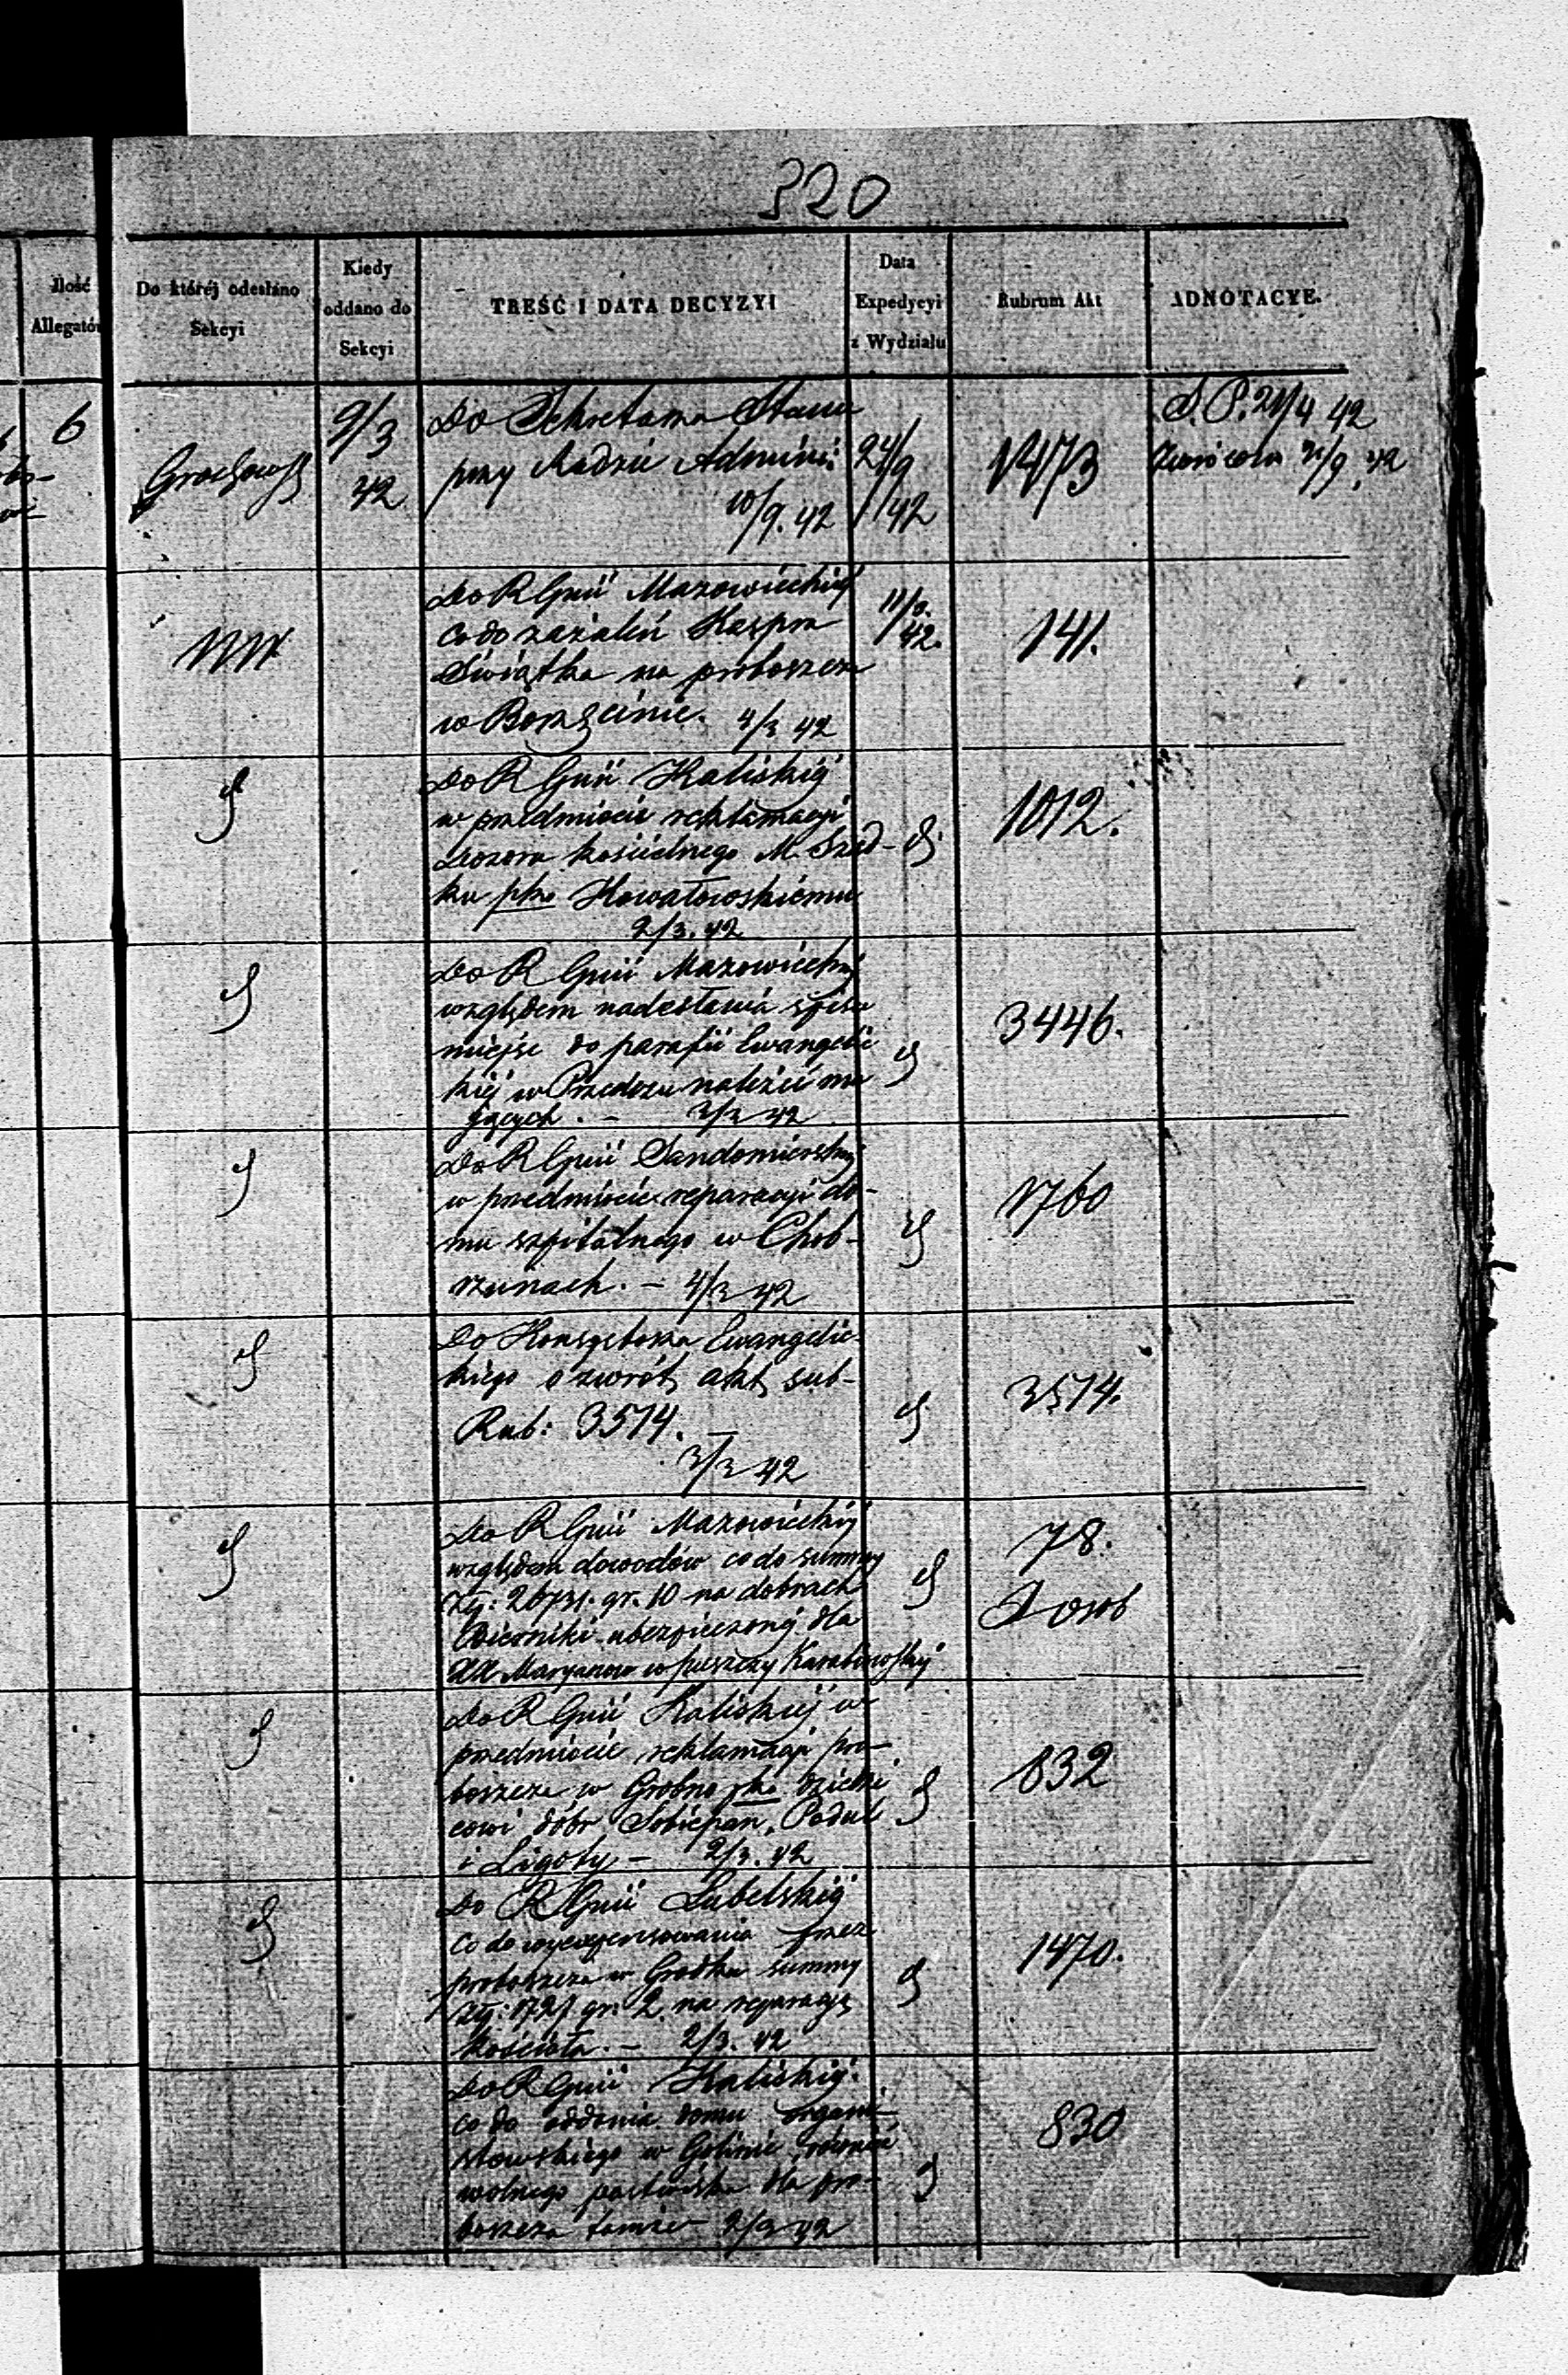 320
Ilość
Allegatów
Do któréj odesłano
Sekcyi
Kiedy
oddano do
Sekcyi
TREŚĆ I DATA DECYZYI
Data
Expedycyi
z Wydziału
Rubrum Akt
ADNOTACYE.
6
9/3
42
Do Sekretarza Stanu
przy Radzie Admini:
10/9. 42
24/9
42
1473
S. P. 21/4 42
Do R Gnii Mazowieckiéj
co do zażaleń Kaspra
Świątka na proboszcza
w Borzęcinie. 4/3 42
11/3.
42.
141.
Do R Gnii Kaliskiéj
w przedmiocie reklamacyi
Dozoru kościelnego M. Szad-
ku pko Kowałowskiemu
2/3. 42
1012.
Do R Gnii Mazowieckiéj
względem nadesłania spisu
miejsc do parafii Ewangelic
kiéj w Przedczu należeć ma
jących. - 3/3 42
3446.
Do R Gnii Sandomierskiéj
w przedmiocie reparacyi do-
mu szpitalnego w Chob-
rzanach. - 4/3 42
1760
Do Konsystorza Ewangelic-
kiego o zwrót akt sub-
Rub: 3574. -
3/3 42
3574.
Do R Gnii Mazowieckiéj
względem dowodów co do summy
złp: 26731. gr. 10 na dobrach
ubezpieczonéj dla
XX Maryanow w puszczy Korabiewskiéj
78.
Do R Gnii Kaliskiéj w
przedmiocie reklamacyi pro-
boszcza w Grobno pko Dziedzi
cowi dóbr Sobiepan, Padul
i Ligoty - 2/3. 42
832
Do R Gnii Lubelskiéj
co do wyexpensowania przez
proboszcza w Gródku summy
złp: 1721 gr. 2. na reparacyą
kościoła. - 2/3. 42
1470.
Do R Gnii Kaliskiéj.
co do oddania domu organi-
stowskiego w Golinie również
wolnego pastwiska dla pro-
boszcza tamże - 2/3 42
830